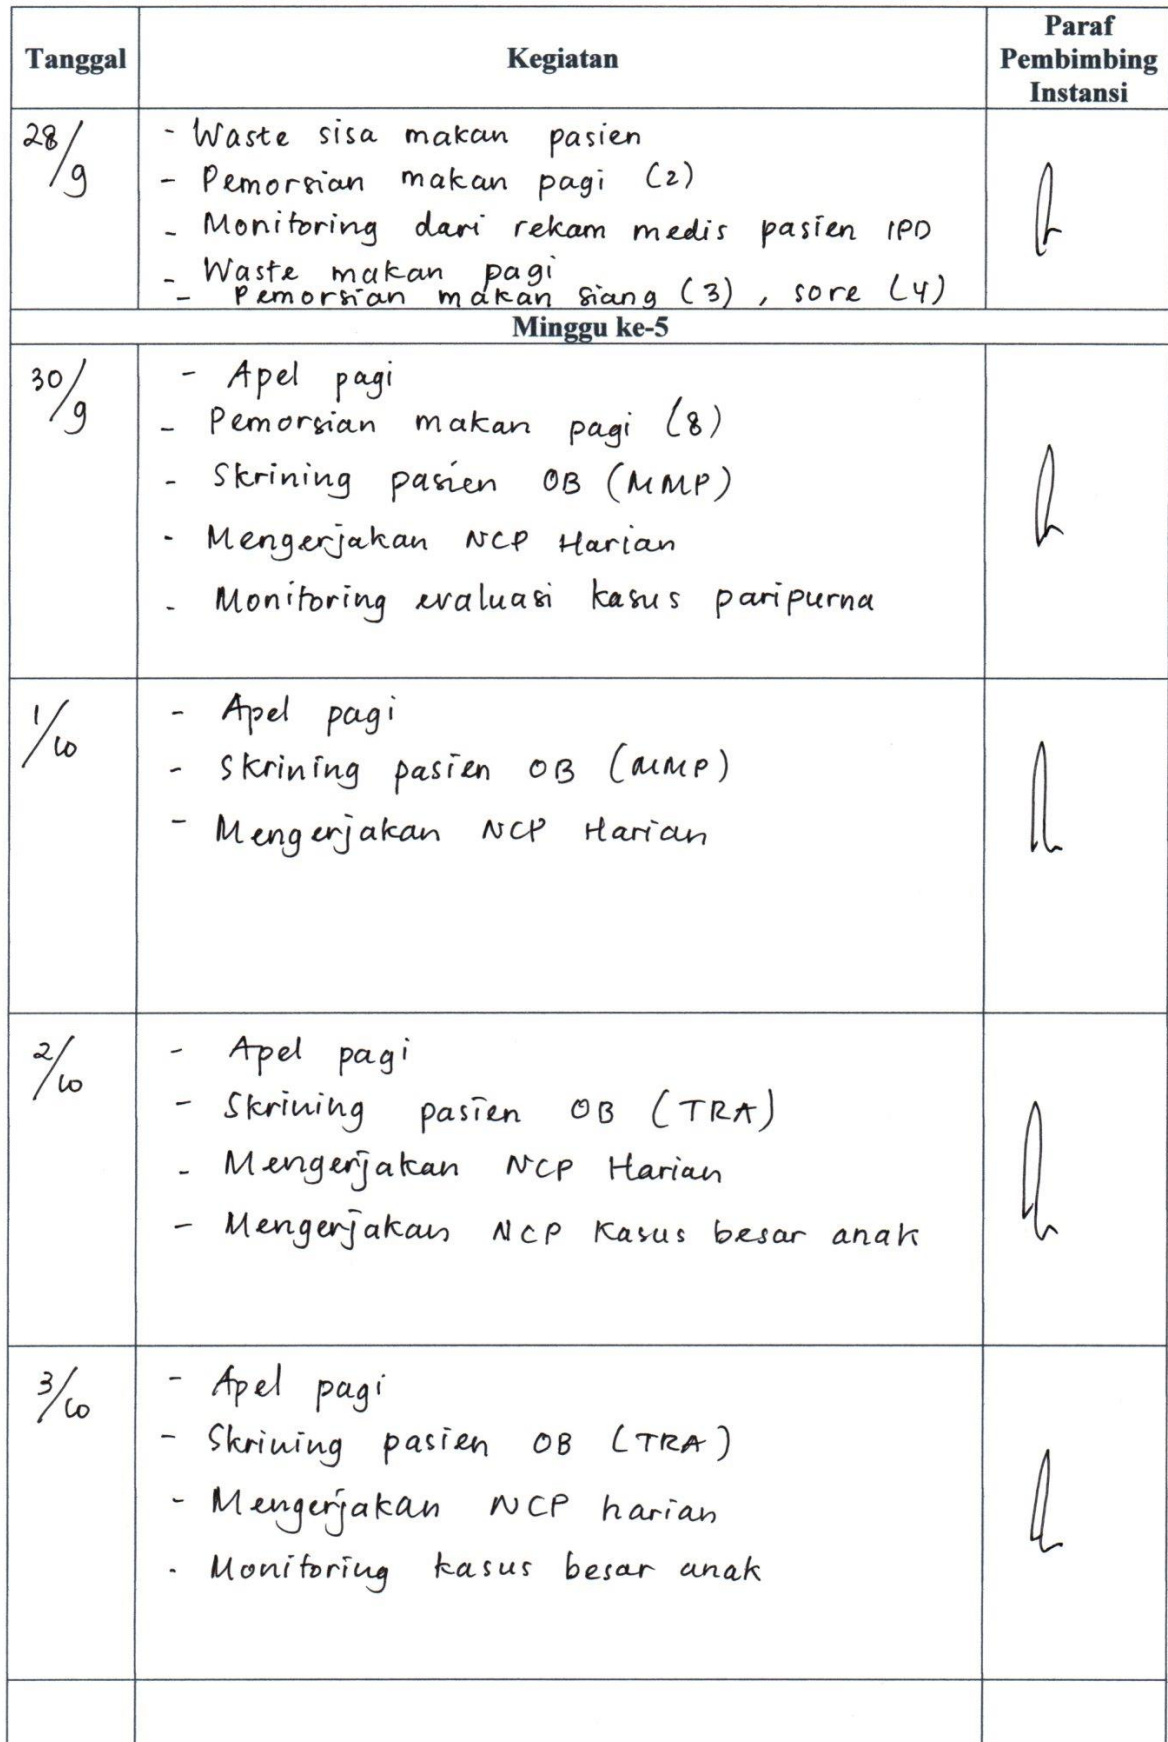 Tanggal Kegiatan Paraf Pembimbing Instansi
28/9
- Waste sisa makan pasien
- Pemorsian makan pagi (2)
- Monitoring dari rekam medis pasien IPD
- Waste makan pagi
- Pemorsian makan siang (3), sore (4)
Minggu ke-5
30/9
- Apel pagi
- Pemorsian makan pagi (8)
- Skrining pasien OB (MMP)
- Mengerjakan NCP Harian
- Monitoring evaluasi kasus paripurna
1/10
- Apel pagi
- Skrining pasien OB (MMP)
- Mengerjakan NCP Harian
2/10
- Apel pagi
- Skrining pasien OB (TRA)
- Mengerjakan NCP Harian
- Mengerjakan NCP Kasus besar anak
3/10
- Apel pagi
- Skrining pasien OB (TRA)
- Mengerjakan NCP harian
- Monitoring kasus besar anak